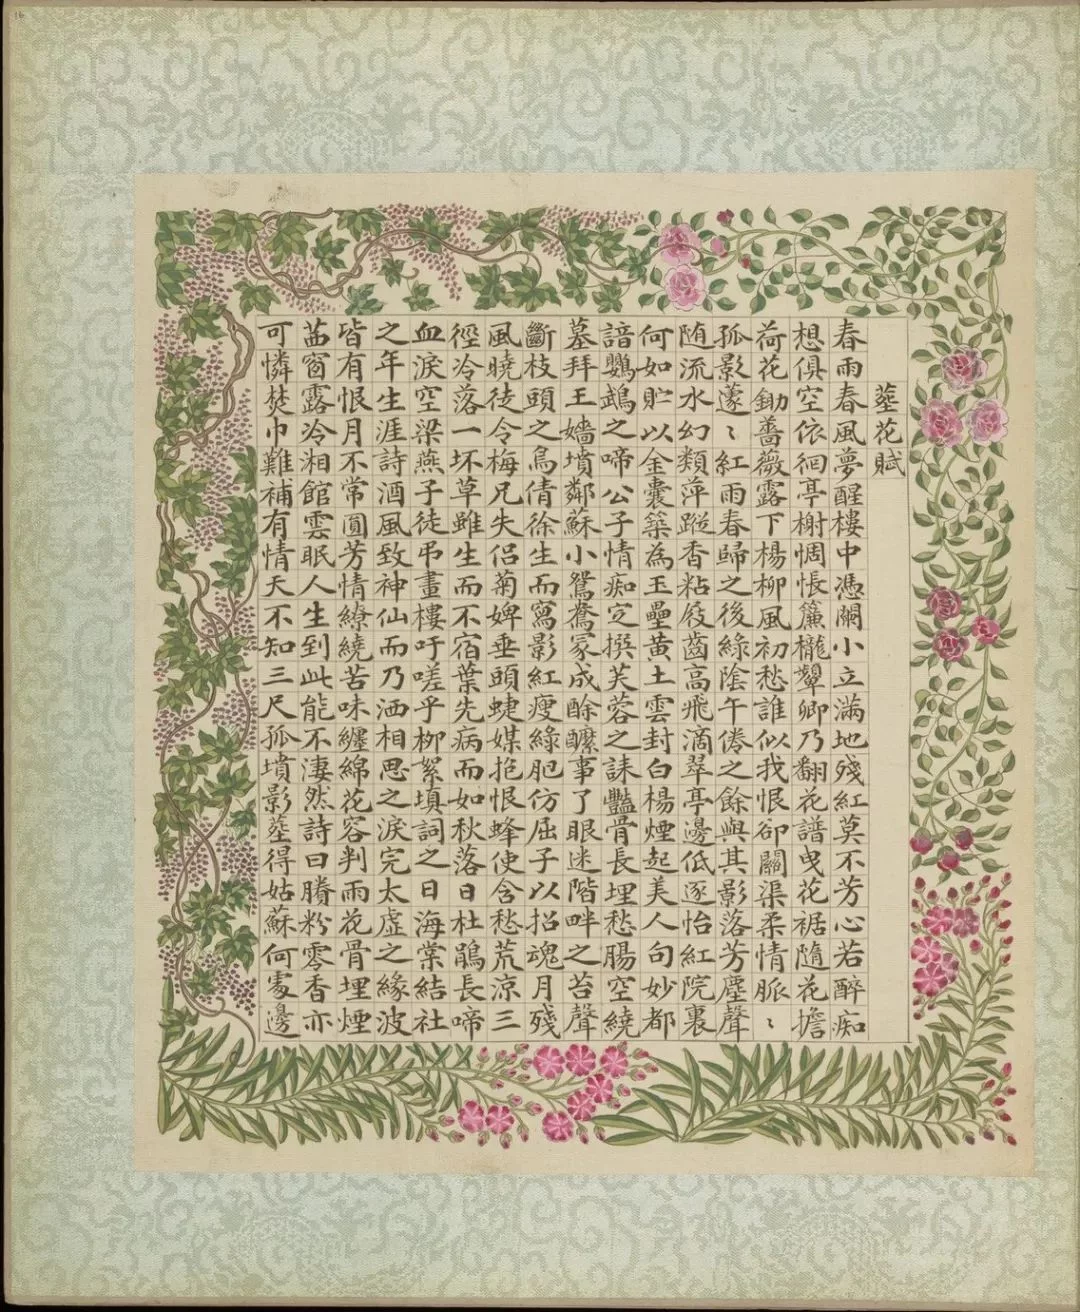 16
塟花賦
春雨春風夢醒樓中憑闌小立滿地殘紅莫不芳心若醉痴
想俱空依徊亭榭惆悵簾櫳顰卿乃翻花譜曳花裾隨花擔
荷花鋤薔薇露下楊柳風初愁誰似我恨卻關渠柔情脈〻
孤影蘧〻紅雨春歸之後綠陰午倦之餘與其影落芳塵聲
随流水幻類萍蹤香粘屐齒高飛滴翠亭邊低逐怡紅院裏
何如貯以金囊築為玉壘黄土雲封白楊煙起美人句妙都
諳鸚鵡之啼公子情痴定撰芙蓉之誄豔骨長埋愁腸空繞
墓拜王嬙墳鄰蘇小鴛鴦冢成酴醾事了眼迷階畔之苔聲
斷枝頭之鳥倩徐生而寫影紅瘦綠肥仿屈子以招魂月殘
風曉徒令梅兄失侣菊婢垂頭蜨媒抱恨蜂使含愁荒涼三
徑冷落一坏草雖生而不宿葉先病而如秋落日杜鵑長啼
血淚空梁燕子徒弔畫樓吁嗟乎柳絮填詞之日海棠結社
之年生涯詩酒風致神仙而乃洒相思之淚完太虛之緣波
皆有恨月不常圓芳情繚繞苦味纏綿花容判雨花骨埋煙
茜窗露冷湘館雲眠人生到此能不淒然詩曰賸粉零香亦
可憐焚巾難補有情天不知三尺孤墳影塟得姑蘇何處邊